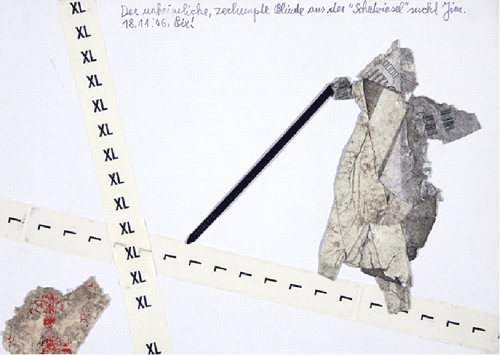 Der unheimliche, zerlumpte Blinde aus der "Schatzinsel" sucht Jim.
18.11.06.
XL
XL
XL
XL
XL
XL
XL
XL
XL
XL
XL
XL
XL
XL
L L L L L L L L L L L L L L L L L L